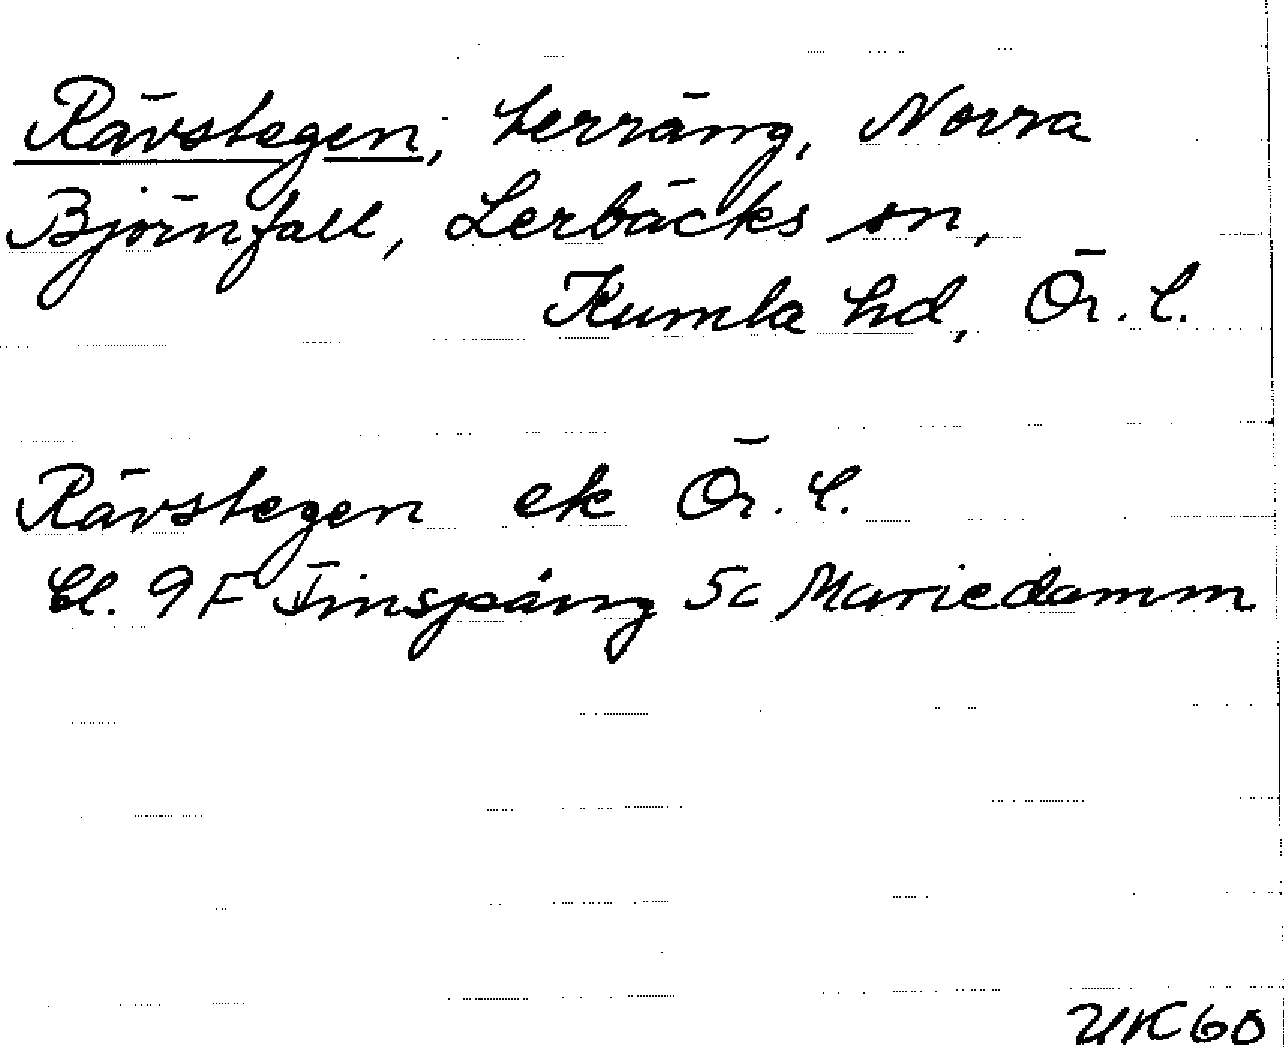 Rävstegen, terräng, Norra
Björnfall, Lerbäcks sn,
Kumla hd, Ör. l.
Rävstegen ek Ör. l.
bl. 9 F Finspång 5c Mariedamm
UK60